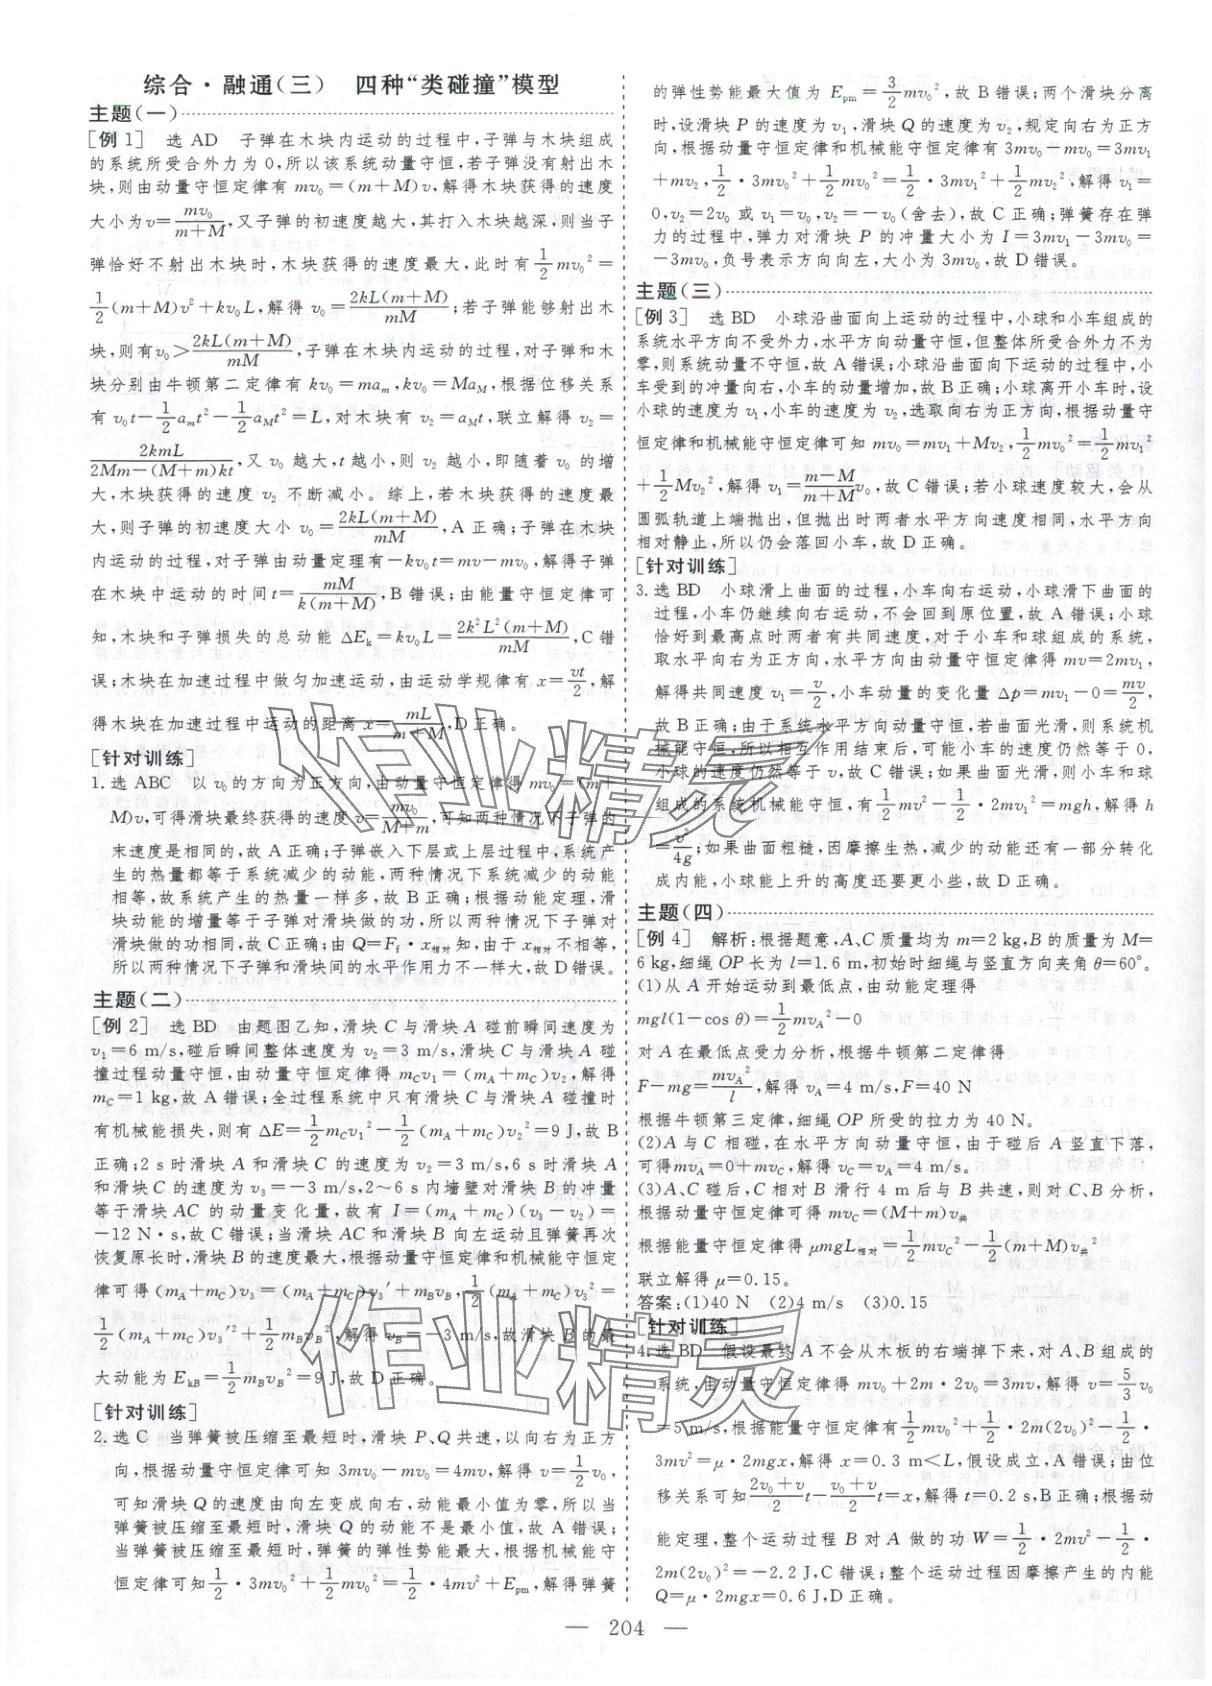 综合·融通(三)　四种“类碰撞”模型
主题(一)
[例1]　选AD　子弹在木块内运动的过程中,子弹与木块组成
的系统所受合外力为0,所以该系统动量守恒,若子弹没有射出木
块,则由动量守恒定律有 mv₀=(m+M)v,解得木块获得的速度
大小为v=mv₀/(m+M),又子弹的初速度越大,其打入木块越深,则当子
弹恰好不射出木块时,木块获得的速度最大,此时有 1/2 mv₀²=
1/2(m+M)v²+kv₀L,解得 v₀=2kL(m+M)/mM;若子弹能够射出木
块,则有v₀>2kL(m+M)/mM,子弹在木块内运动的过程,对子弹和木
块分别由牛顿第二定律有 kv₀=maₘ,kv₀=Ma_M,根据位移关系
有 v₀t-1/2 aₘt²-1/2 a_Mt²=L,对木块有 v₂=a_Mt,联立解得 v₂=
2kmL/(2Mm-(M+m)kt),又 v₀ 越大,t越小,则 v₂ 越小,即随着 v₀ 的增
大,木块获得的速度 v₂ 不断减小。综上,若木块获得的速度最
大,则子弹的初速度大小 v₀=2kL(m+M)/mM,A 正确;子弹在木块
内运动的过程,对子弹由动量定理有-kv₀t=mv-mv₀,解得子弹
在木块中运动的时间 t=mM/k(m+M),B错误;由能量守恒定律可
知,木块和子弹损失的总动能 ΔEₖ=kv₀L=2k²L²(m+M)/mM,C错
误;木块在加速过程中做匀加速运动,由运动学规律有 x=vt/2,解
得木块在加速过程中运动的距离 x=mL/(m+M),D正确。
[针对训练]
1. 选ABC　以 v₀ 的方向为正方向,由动量守恒定律得 mv₀=(m+
M)v,可得滑块最终获得的速度 v=mv₀/(M+m),可知两种情况下子弹的
末速度是相同的,故 A 正确;子弹嵌入下层或上层过程中,系统产
生的热量都等于系统减少的动能,两种情况下系统减少的动能
相等,故系统产生的热量一样多,故 B正确;根据动能定理,滑
块动能的增量等于子弹对滑块做的功,所以两种情况下子弹对
滑块做的功相同,故C正确;由 Q=F_f·x相对知,由于x相对不相等,
所以两种情况下子弹和滑块间的水平作用力不一样大,故D错误。
主题(二)
[例2]　选BD　由题图乙知,滑块C与滑块A碰前瞬间速度为
v₁=6 m/s,碰后瞬间整体速度为 v₂=3 m/s,滑块C与滑块 A 碰
撞过程动量守恒,由动量守恒定律得 m_Cv₁=(m_A+m_C)v₂,解得
m_C=1 kg,故 A 错误;全过程系统中只有滑块C与滑块A碰撞时
有机械能损失,则有 ΔE=1/2 m_Cv₁²-1/2(m_A+m_C)v₂²=9 J,故 B
正确;2 s时滑块 A 和滑块 C 的速度为 v₂=3 m/s,6 s时滑块A
和滑块C的速度为 v₃=-3 m/s,2~6 s内墙壁对滑块B的冲量
等于滑块 AC 的动量变化量,故有 I=(m_A+m_C)(v₃-v₂)=
-12 N·s,故C错误;当滑块 AC和滑块B向左运动且弹簧再次
恢复原长时,滑块B的速度最大,根据动量守恒定律和机械能守恒定
律可得(m_A+m_C)v₃=(m_A+m_C)v₃′+m_Bv_B,1/2(m_A+m_C)v₃²=
1/2(m_A+m_C)v₃′²+1/2 m_Bv_B²,解得 v_B=-3 m/s,故滑块B的最
大动能为 EₖB=1/2 m_Bv_B²=9 J,故D正确。
[针对训练]
2. 选C　当弹簧被压缩至最短时,滑块 P、Q共速,以向右为正方
向,根据动量守恒定律可知 3mv₀-mv₀=4mv,解得 v=1/2 v₀,
可知滑块Q的速度由向左变成向右,动能最小值为零,所以当
弹簧被压缩至最短时,滑块Q的动能不是最小值,故A错误;
当弹簧被压缩至最短时,弹簧的弹性势能最大,根据机械能守
恒定律可知1/2·3mv₀²+1/2 mv₀²=1/2·4mv²+Eₚₘ,解得弹簧
的弹性势能最大值为 Eₚₘ=3/2 mv₀²,故B错误;两个滑块分离
时,设滑块P的速度为 v₁,滑块Q的速度为 v₂,规定向右为正方
向,根据动量守恒定律和机械能守恒定律有 3mv₀-mv₀=3mv₁
+mv₂,1/2·3mv₀²+1/2 mv₀²=1/2·3mv₁²+1/2 mv₂²,解得 v₁=
0,v₂=2v₀ 或 v₁=v₀,v₂=-v₀(舍去),故C正确;弹簧存在弹
力的过程中,弹力对滑块P的冲量大小为 I=3mv₁-3mv₀=
-3mv₀,负号表示方向向左,大小为 3mv₀,故D错误。
主题(三)
[例3]　选BD　小球沿曲面向上运动的过程中,小球和小车组成的
系统水平方向不受外力,水平方向动量守恒,但整体所受合外力不为
零,则系统动量不守恒,故A错误;小球沿曲面向下运动的过程中,小
车受到的冲量向右,小车的动量增加,故B正确;小球离开小车时,设
小球的速度为 v₁,小车的速度为 v₂,选取向右为正方向,根据动量守
恒定律和机械能守恒定律可知 mv₀=mv₁+Mv₂,1/2 mv₀²=1/2 mv₁²
+1/2 Mv₂²,解得 v₁=(m-M)/(m+M)v₀,故C错误;若小球速度较大,会从
圆弧轨道上端抛出,但抛出时两者水平方向速度相同,水平方向
相对静止,所以仍会落回小车,故D正确。
[针对训练]
3. 选BD　小球滑上曲面的过程,小车向右运动,小球滑下曲面的
过程,小车仍继续向右运动,不会回到原位置,故A错误;小球
恰好到最高点时两者有共同速度,对于小车和球组成的系统,
取水平向右为正方向,水平方向由动量守恒定律得 mv=2mv₁,
解得共同速度 v₁=v/2,小车动量的变化量 Δp=mv₁-0=mv/2,
故B正确;由于系统水平方向动量守恒,若曲面光滑,则系统机
械能守恒,所以相互作用结束后,可能小车的速度仍然等于0,
小球的速度仍然等于v,故C错误;如果曲面光滑,则小车和球
组成的系统机械能守恒,有1/2 mv²-1/2·2mv₁²=mgh,解得 h
=v²/4g;如果曲面粗糙,因摩擦生热,减少的动能还有一部分转化
成内能,小球能上升的高度还要更小些,故D正确。
主题(四)
[例4]　解析:根据题意,A、C质量均为m=2 kg,B的质量为M=
6 kg,细绳OP长为l=1.6 m,初始时细绳与竖直方向夹角θ=60°。
(1)从A开始运动到最低点,由动能定理得
mgl(1-cos θ)=1/2 mv_A²-0
对A在最低点受力分析,根据牛顿第二定律得
F-mg=mv_A²/l,解得 v_A=4 m/s,F=40 N
根据牛顿第三定律,细绳OP所受的拉力为40 N。
(2)A与C相碰,在水平方向动量守恒,由于碰后A竖直下落,
可得mv_A=0+mv_C,解得 v_C=v_A=4 m/s。
(3)A、C碰后,C相对B滑行4 m后与B共速,则对C、B分析,
根据动量守恒定律可得 mv_C=(M+m)v共
根据能量守恒定律得μmgL相对=1/2 mv_C²-1/2(m+M)v共²
联立解得μ=0.15。
答案:(1)40 N　(2)4 m/s　(3)0.15
[针对训练]
4. 选BD　假设最终A不会从木板的右端掉下来,对A、B组成的
系统,由动量守恒定律得 mv₀+2m·2v₀=3mv,解得 v=5/3 v₀
=5 m/s,根据能量守恒定律有1/2 mv₀²+1/2·2m(2v₀)²-1/2·
3mv²=μ·2mgx,解得 x=0.3 m<L,假设成立,A错误;由位
移关系可知(2v₀+v)/2 t-(v₀+v)/2 t=x,解得 t=0.2 s,B正确;根据动
能定理,整个运动过程 B 对 A 做的功 W=1/2·2mv²-1/2·
2m(2v₀)²=-2.2 J,C错误;整个运动过程因摩擦产生的内能
Q=μ·2mgx=0.6 J,D正确。
— 204 —
作业精灵
作业精灵